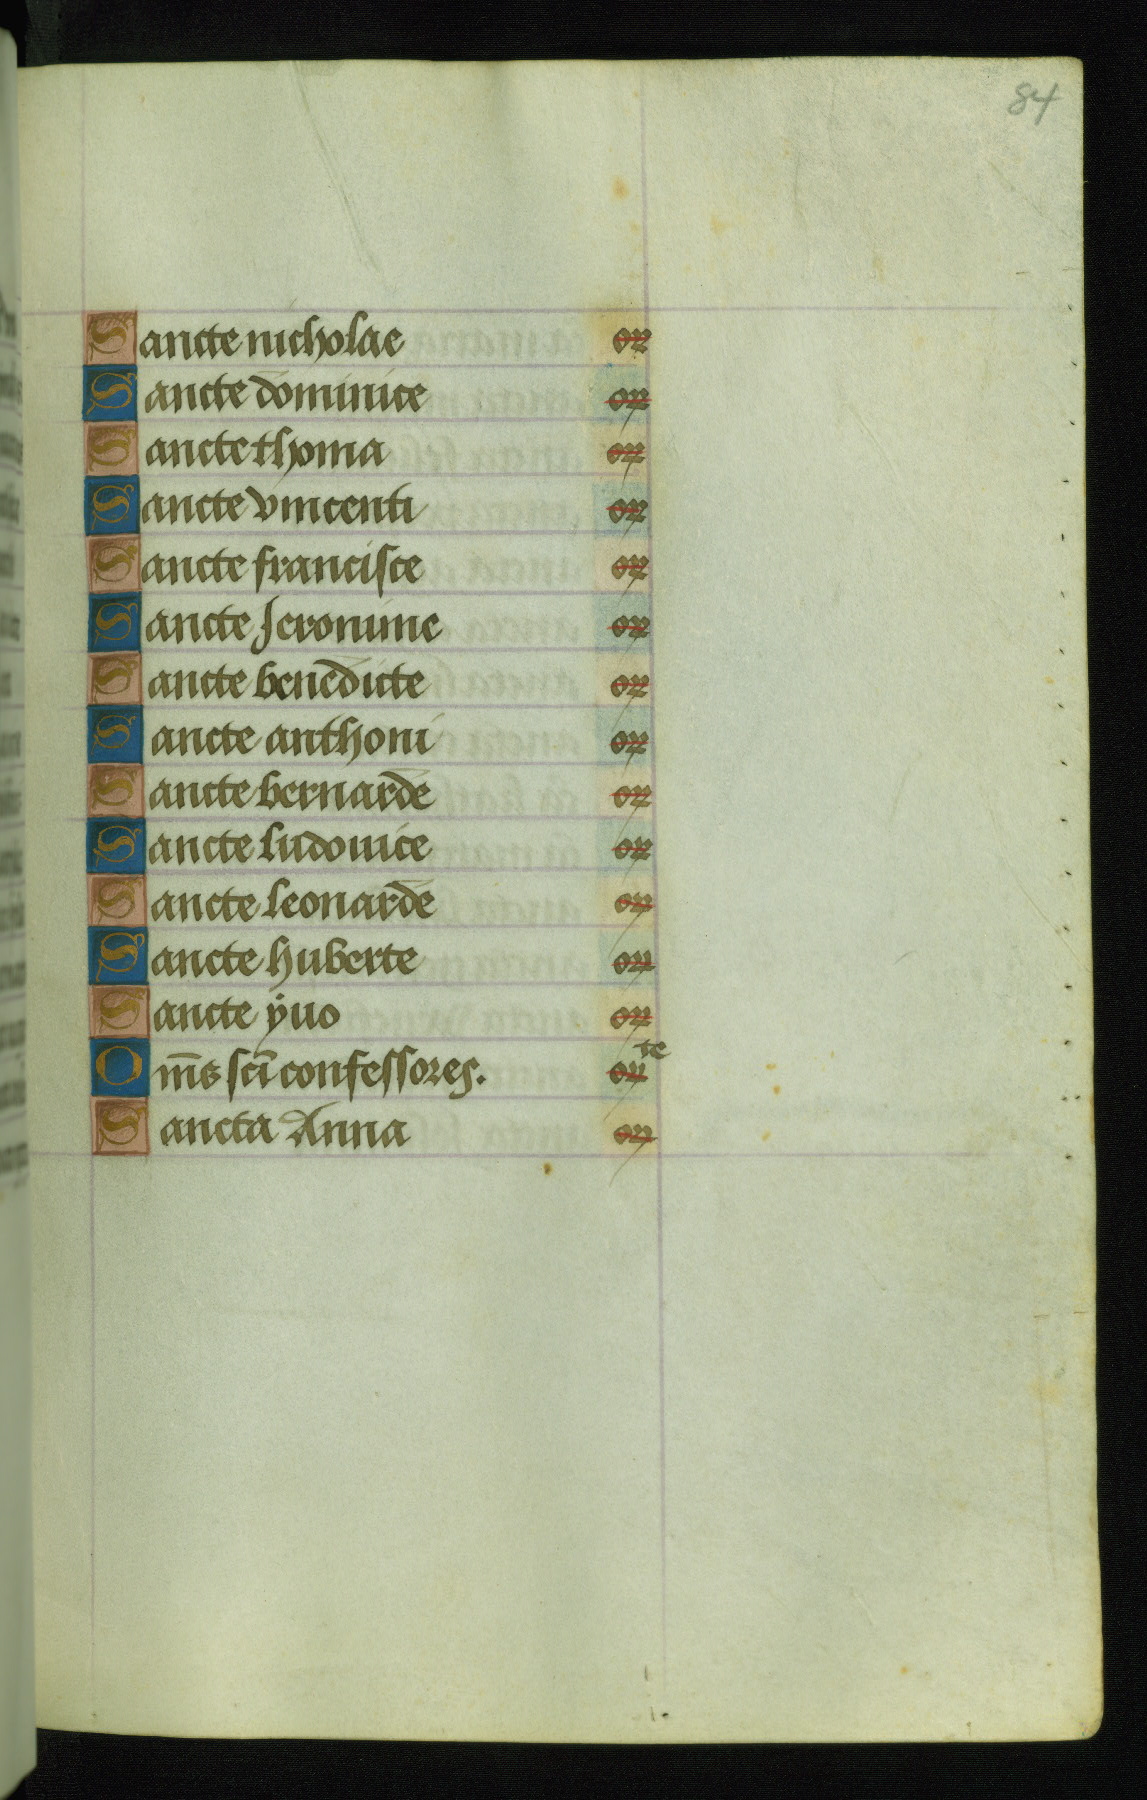 84
Sancte nicholae or
Sancte dominice or
Sancte thoma or
Sancte vincenti or
Sancte francisce or
Sancte Jeronime or
Sancte benedicte or
Sancte anthoni or
Sancte bernarde or
Sancte ludouice or
Sancte leonarde or
Sancte huberte or
Sancte ÿuo or
Om̄s sc̄i confessores. orte
Sancta Anna or